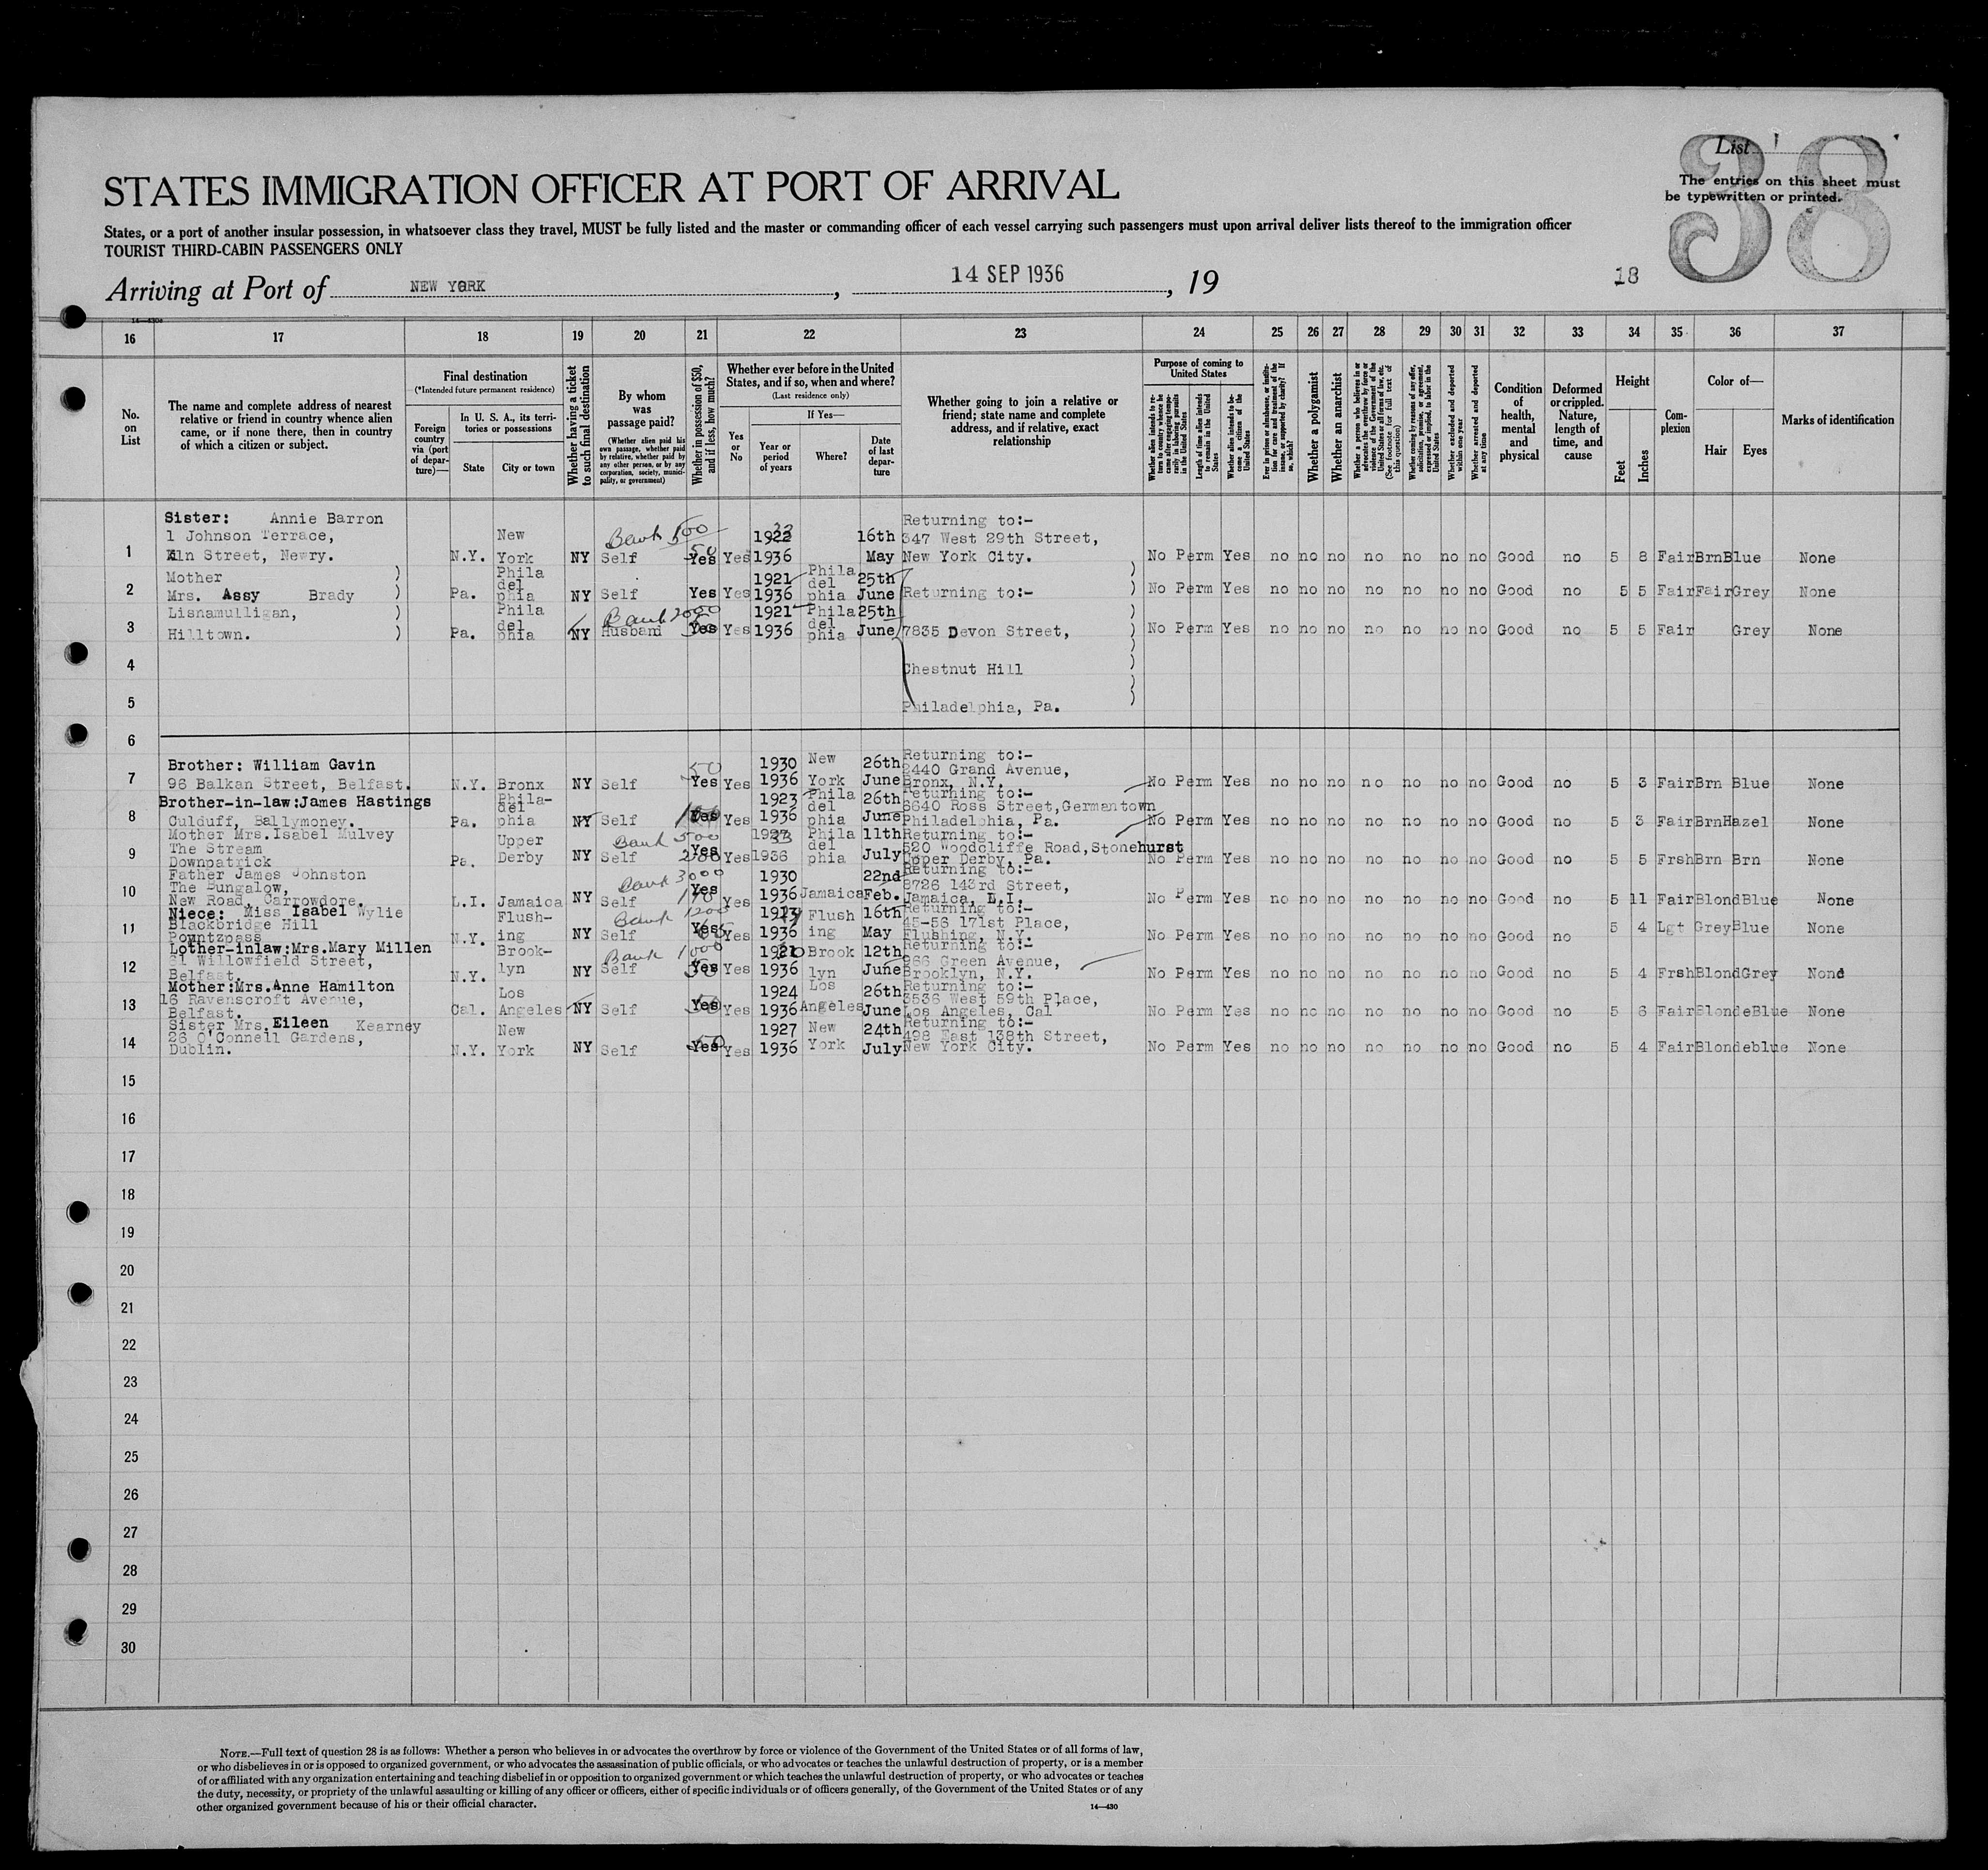 List
38
The entries on this sheet must
be typewritten or printed.
STATES IMMIGRATION OFFICER AT PORT OF ARRIVAL
States, or a port of another insular possession, in whatsoever class they travel, MUST be fully listed and the master or commanding officer of each vessel carrying such passengers must upon arrival deliver lists thereof to the immigration officer
TOURIST THIRD-CABIN PASSENGERS ONLY
Arriving at Port of NEW YORK, 14 SEP 1936, 19
18
16 17 18 19 20 21 22 23 24 25 26 27 28 29 30 31 32 33 34 35 36 37
No. on List
The name and complete address of nearest relative or friend in country whence alien came, or if none there, then in country of which a citizen or subject.
Final destination
(*Intended future permanent residence)
Foreign country via (port of departure)—
In U. S. A., its territories or possessions
State
City or town
Whether having a ticket to such final destination
By whom was passage paid?
(Whether alien paid his own passage, whether paid by relative, whether paid by any other person, or by any corporation, society, municipality, or government)
Whether in possession of $50, and if less, how much?
Whether ever before in the United States, and if so, when and where?
(Last residence only)
Yes or No
If Yes—
Year or period of years
Where?
Date of last departure
Whether going to join a relative or friend; state name and complete address, and if relative, exact relationship
Purpose of coming to United States
Length of time alien intends to remain in the United States
Whether alien intends to become a citizen of the United States
Whether a polygamist
Whether an anarchist
Whether excluded and deported within one year
Whether arrested and deported at any time
Condition of health, mental and physical
Deformed or crippled. Nature, length of time, and cause
Height
Feet
Inches
Complexion
Color of—
Hair
Eyes
Marks of identification
Sister: Annie Barron
1 Johnson Terrace,
1 Street, Newry. N.Y. New York NY Self Bank 500 50 Yes Yes 1936 16th May Returning to:- 347 West 29th Street, New York City. No Perm Yes no no no no no no no Good no 5 8 Fair Brn Blue None
Mother
2 Mrs. Assy Brady Pa. Phila del phia NY Self Yes Yes 1921 1936 Phila del phia 25th June Returning to:- No Perm Yes no no no no no no no Good no 5 5 Fair Fair Grey None
Lisnamulligan,
3 Hilltown. Pa. Phila del phia NY Husband Bank 2000 Yes Yes 1921 1936 Phila del phia 25th June 7835 Devon Street, No Perm Yes no no no no no no no Good no 5 5 Fair Grey None
4 Chestnut Hill
5 Philadelphia, Pa.
6
Brother: William Gavin
7 96 Balkan Street, Belfast. N.Y. Bronx NY Self 50 Yes Yes 1930 1936 New York 26th June Returning to:- 2440 Grand Avenue, Bronx, N.Y. No Perm Yes no no no no no no no Good no 5 3 Fair Brn Blue None
Brother-in-law:James Hastings
8 Culduff, Ballymoney. Pa. Phila-del phia NY Self Yes Yes 1923 1936 Phila del phia 26th June Returning to:- 6640 Ross Street,Germantown Philadelphia, Pa. No Perm Yes no no no no no no no Good no 5 3 Fair Brn Hazel None
Mother Mrs.Isabel Mulvey
The Stream
9 Downpatrick Pa. Upper Derby NY Self Bank 500 Yes 200 Yes 1936 Phila del phia 11th July Returning to:- 520 Woodcliffe Road,Stonehurst Upper Derby, Pa. No Perm Yes no no no no no no no Good no 5 5 Frsh Brn Brn None
Father James Johnston
The Bungalow,
10 New Road, Carrowdore. L.I. Jamaica NY Self Bank 3000 Yes Yes 1930 1936 Jamaica 22nd Feb. Returning to:- 8726 143rd Street, Jamaica, L.I. No Perm Yes no no no no no no no Good no 5 11 Fair Blond Blue None
Niece: Miss Isabel Wylie
Blackbridge Hill
11 Pountzpass N.Y. Flush-ing NY Self Bank 1200 Yes Yes 1936 Flush ing 16th May Returning to:- 45-56 171st Place, Flushing, N.Y. No Perm Yes no no no no no no no Good no 5 4 Lgt Grey Blue None
Lother-inlaw:Mrs.Mary Millen
12 Willowfield Street, Belfast. N.Y. Brook-lyn NY Self Bank 1000 Yes Yes 1936 Brook lyn 12th June Returning to:- 966 Green Avenue, Brooklyn, N.Y. No Perm Yes no no no no no no no Good no 5 4 Frsh Blond Grey None
Mother:Mrs.Anne Hamilton
16 Ravenscroft Avenue,
13 Belfast. Cal. Los Angeles NY Self Yes Yes 1924 1936 Los Angeles 26th June Returning to:- 3536 West 59th Place, Los Angeles, Cal No Perm Yes no no no no no no no Good no 5 6 Fair Blonde Blue None
Sister Mrs.Eileen Kearney
26 O'Connell Gardens,
14 Dublin. N.Y. New York NY Self 50 Yes Yes 1927 1936 New York 24th July Returning to:- 498 East 138th Street, New York City. No Perm Yes no no no no no no no Good no 5 4 Fair Blonde blue None
15
16
17
18
19
20
21
22
23
24
25
26
27
28
29
30
NOTE.—Full text of question 28 is as follows: Whether a person who believes in or advocates the overthrow by force or violence of the Government of the United States or of all forms of law,
or who disbelieves in or is opposed to organized government, or who advocates the assassination of public officials, or who advocates or teaches the unlawful destruction of property, or is a member
of or affiliated with any organization entertaining and teaching disbelief in or opposition to organized government or which teaches the unlawful destruction of property, or who advocates or teaches
the duty, necessity, or propriety of the unlawful assaulting or killing of any officer or officers, either of specific individuals or of officers generally, of the Government of the United States or of any
other organized government because of his or their official character.
14—430